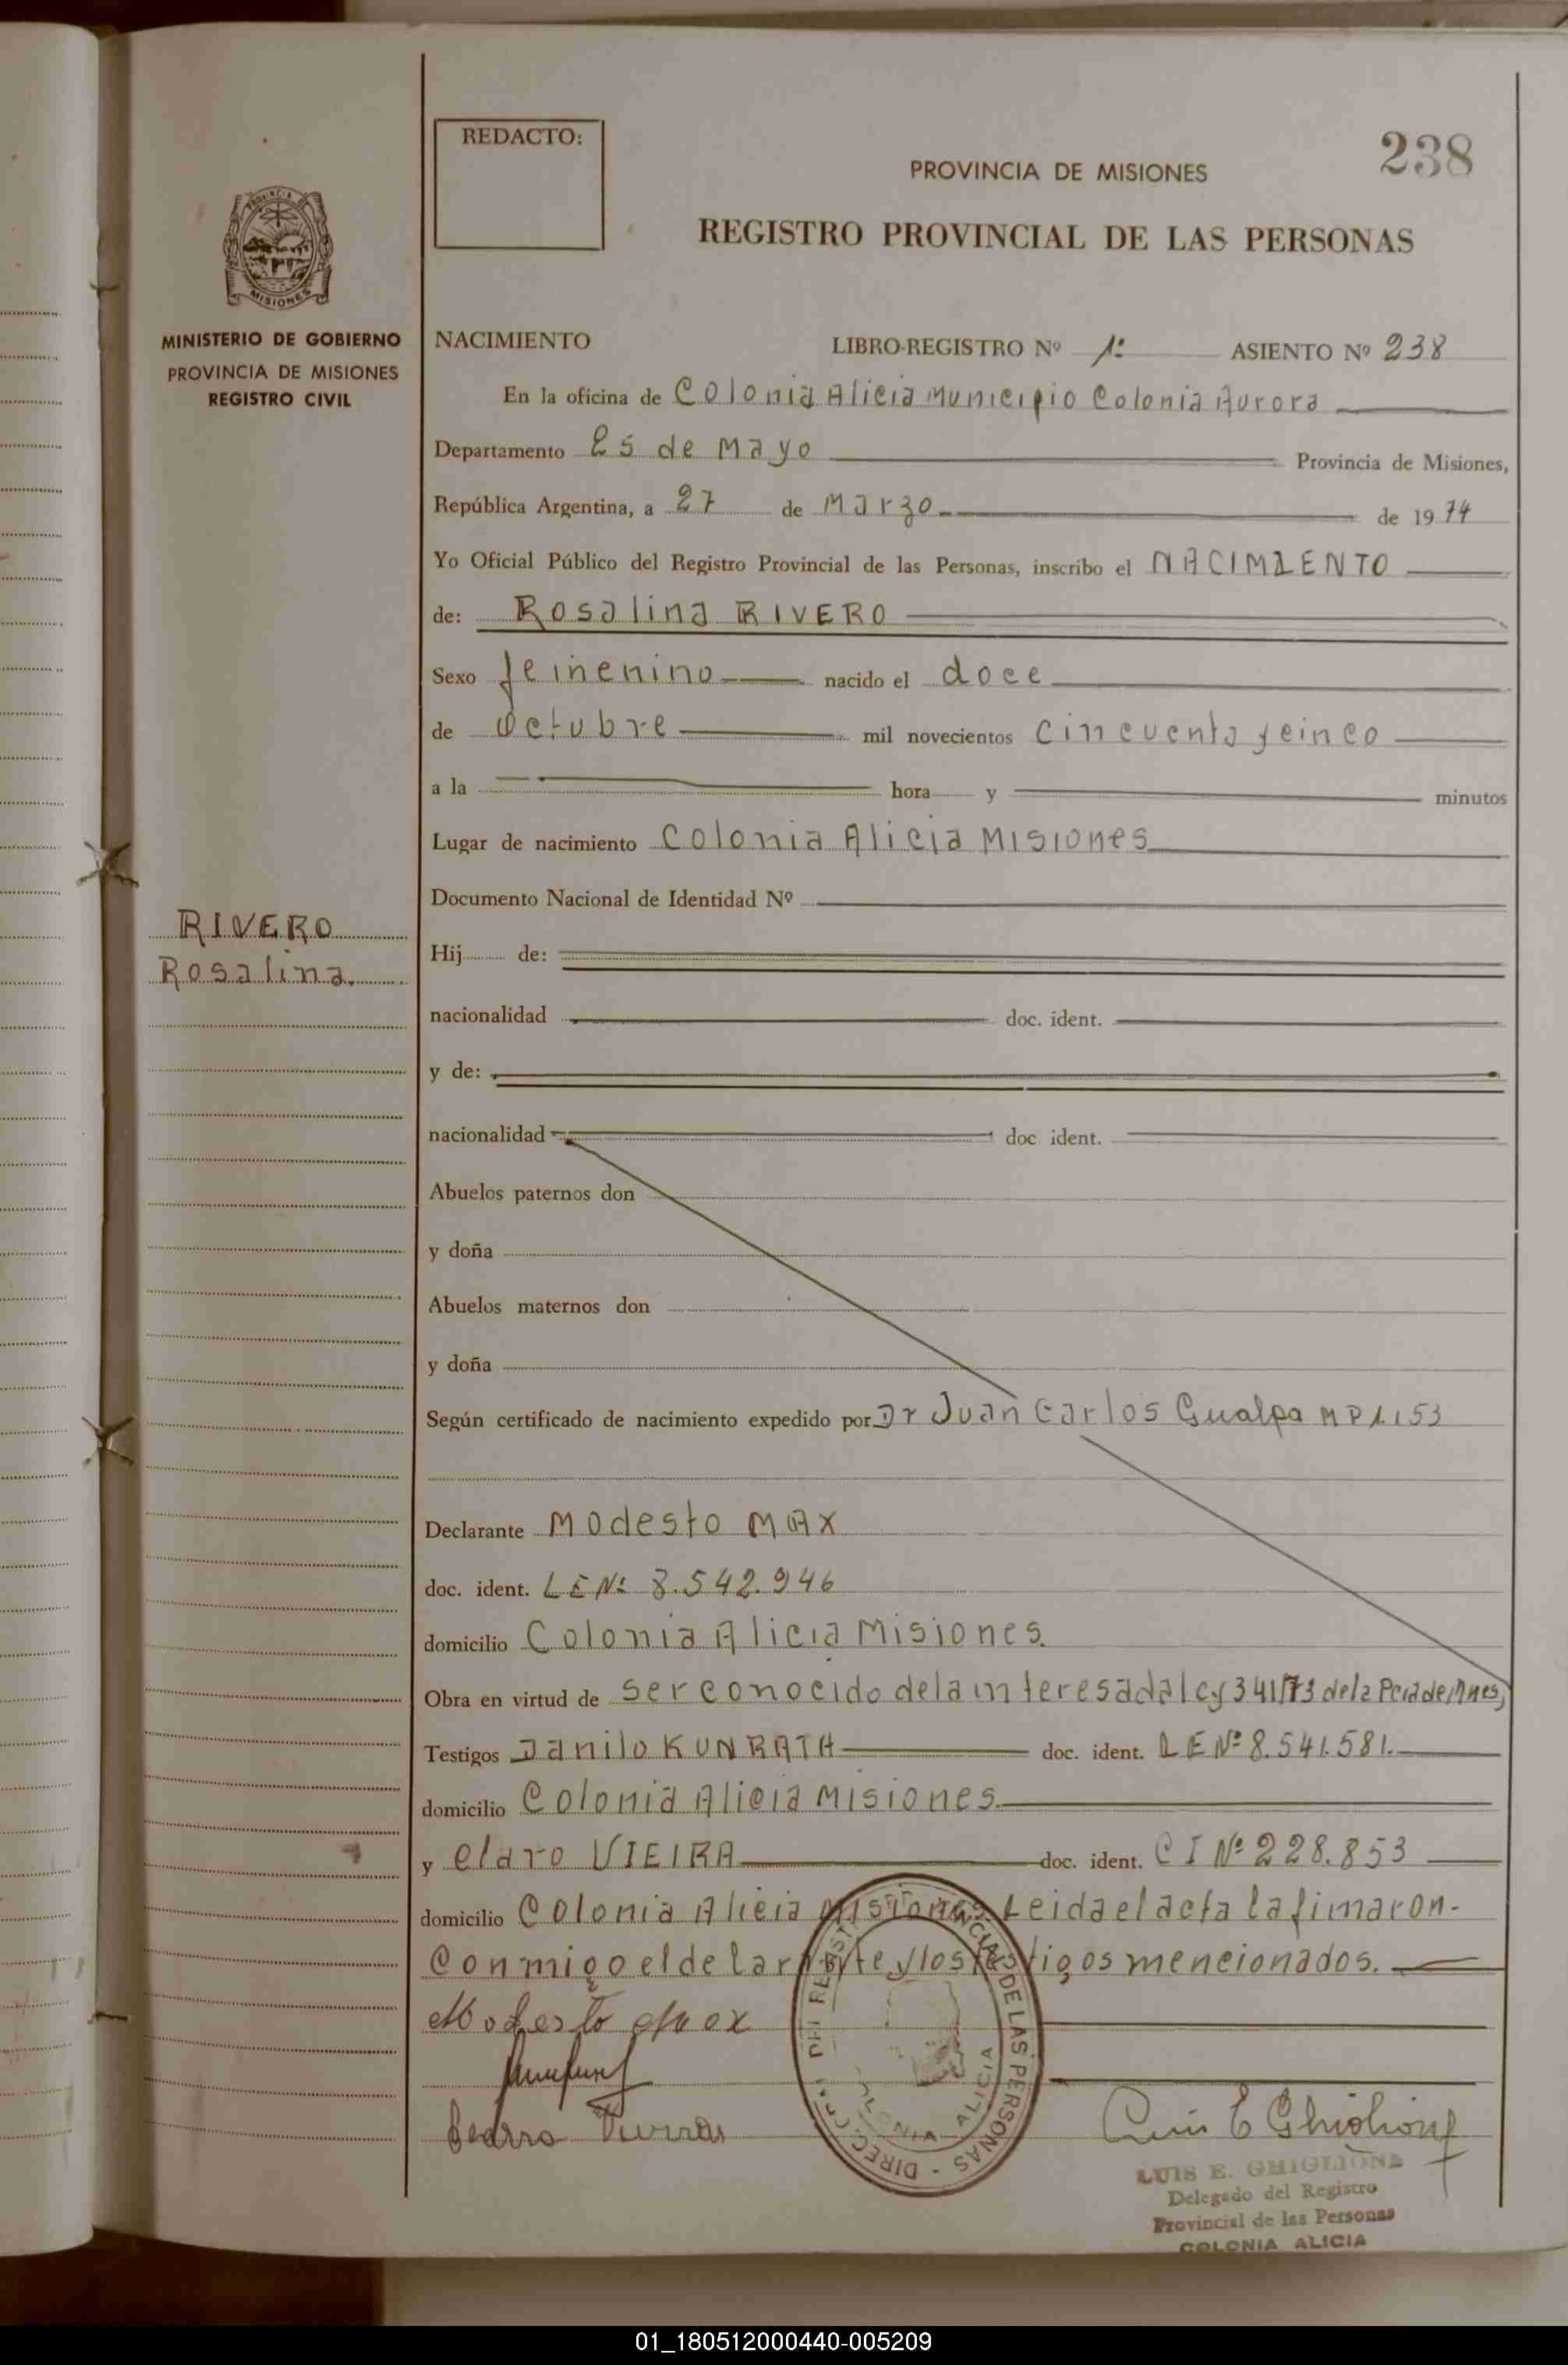 REDACTO:
238
PROVINCIA DE MISIONES
REGISTRO PROVINCIAL DE LAS PERSONAS
MISIONES
MINISTERIO DE GOBIERNO
PROVINCIA DE MISIONES
REGISTRO CIVIL
RIVERO
Rosalina
NACIMIENTO LIBRO-REGISTRO Nº 1º ASIENTO Nº 238
En la oficina de Colonia Alicia Municipio Colonia Aurora
Departamento 25 de Mayo Provincia de Misiones,
República Argentina, a 27 de Marzo de 1974
Yo Oficial Público del Registro Provincial de las Personas, inscribo el NACIMIENTO
de: Rosalina RIVERO
Sexo femenino nacido el doce
de Octubre mil novecientos cincuenta y cinco
a la hora y minutos
Lugar de nacimiento Colonia Alicia Misiones
Documento Nacional de Identidad Nº
Hij de:
nacionalidad doc. ident.
y de:
nacionalidad doc. ident.
Abuelos paternos don
y doña
Abuelos maternos don
y doña
Según certificado de nacimiento expedido por Dr Juan Carlos Gualpa MP 1.153
Declarante Modesto MAX
doc. ident. LE Nº 8.542.946
domicilio Colonia Alicia Misiones.
Obra en virtud de ser conocido de la interesada ley 341/73 de la Pcia de Mnes,
Testigos Danilo KUNRATH doc. ident. LE Nº 8.541.581.
domicilio Colonia Alicia Misiones.
y Claro VIEIRA doc. ident. CI Nº 228.853
domicilio Colonia Alicia Misiones. Leida el acta la fimaron-
Conmigo el delarante y los testigos mencionados.
Modesto Max
Luis E Ghiglione
LUIS E. GHIGLIONE
Delegado del Registro
Provincial de las Personas
COLONIA ALICIA
01_180512000440-005209